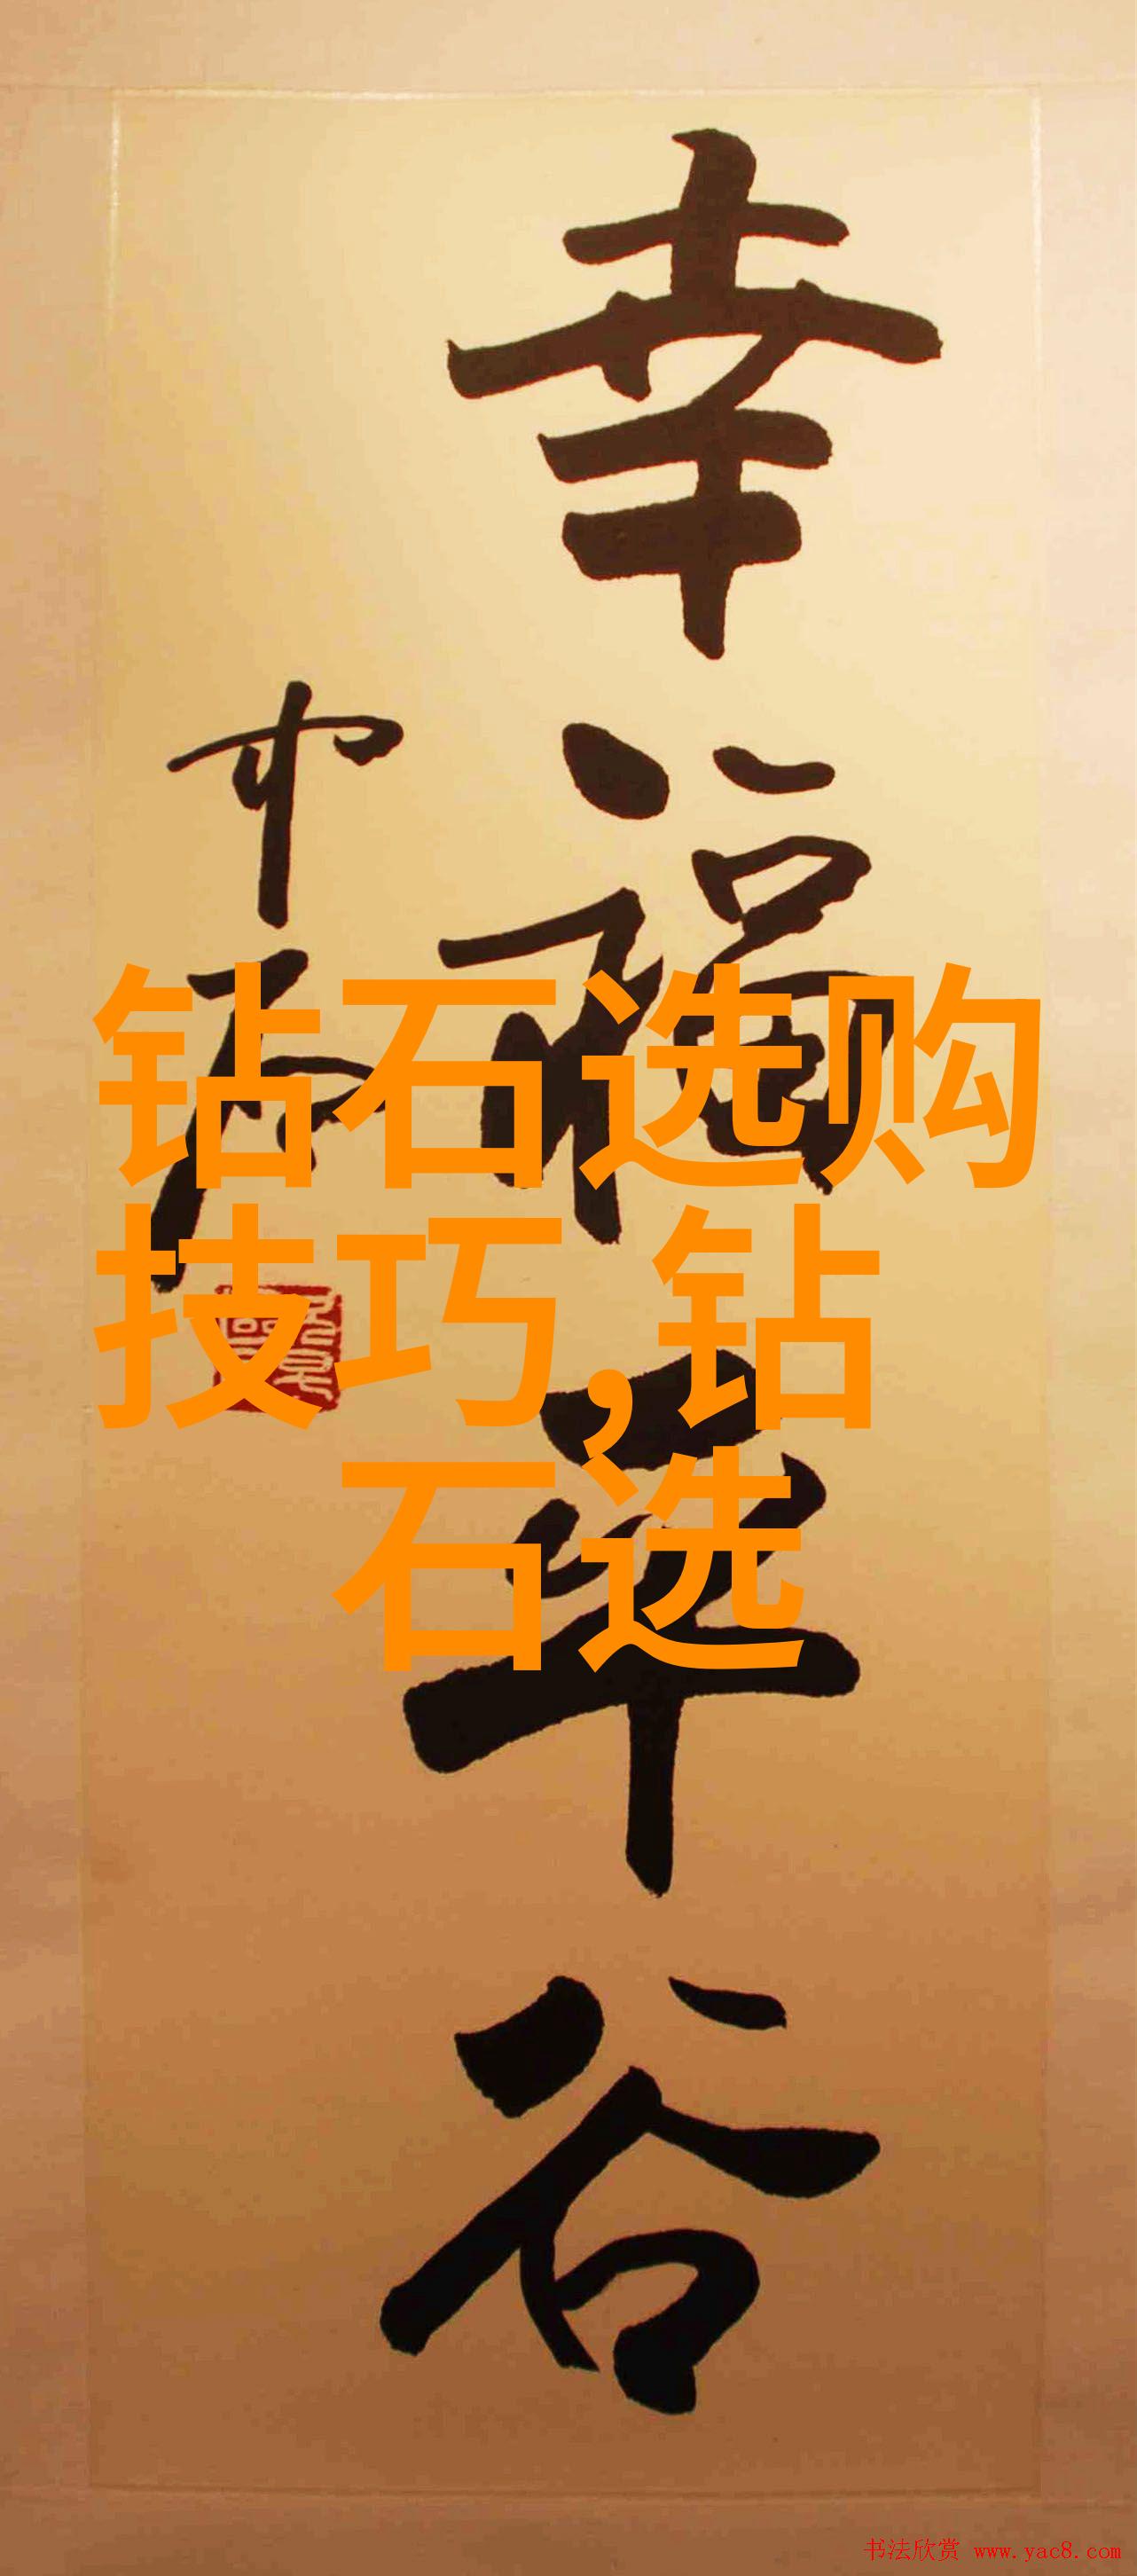 幸福华谷
中石
钻石选购
技巧,钻
石选
书法欣赏 www.yac8.com